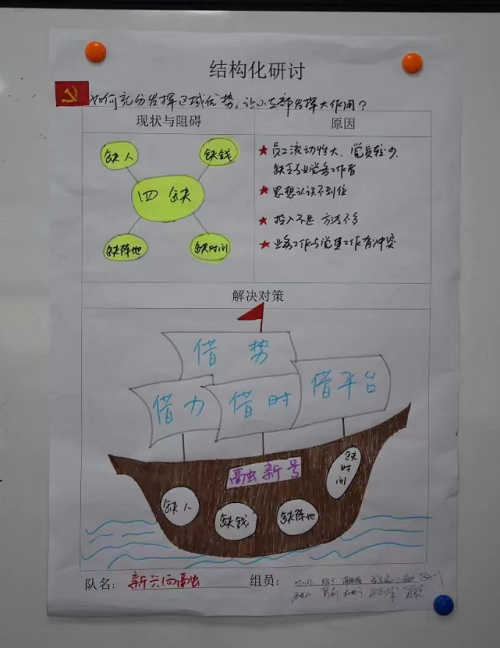 结构化研讨
如何充分发挥区域优势，让小支部发挥大作用？
现状与阻碍
原因
缺人
缺钱
四缺
缺阵地
缺时间
★员工流动性大、党员较少
缺乏专业党务工作者
★思想认识不到位
★投入不足 方法不多
★业务工作与党建工作有冲突
解决对策
借势
借力
借时
借平台
高虫新号
缺人
缺钱
缺阵地
缺时间
队名：
组员：